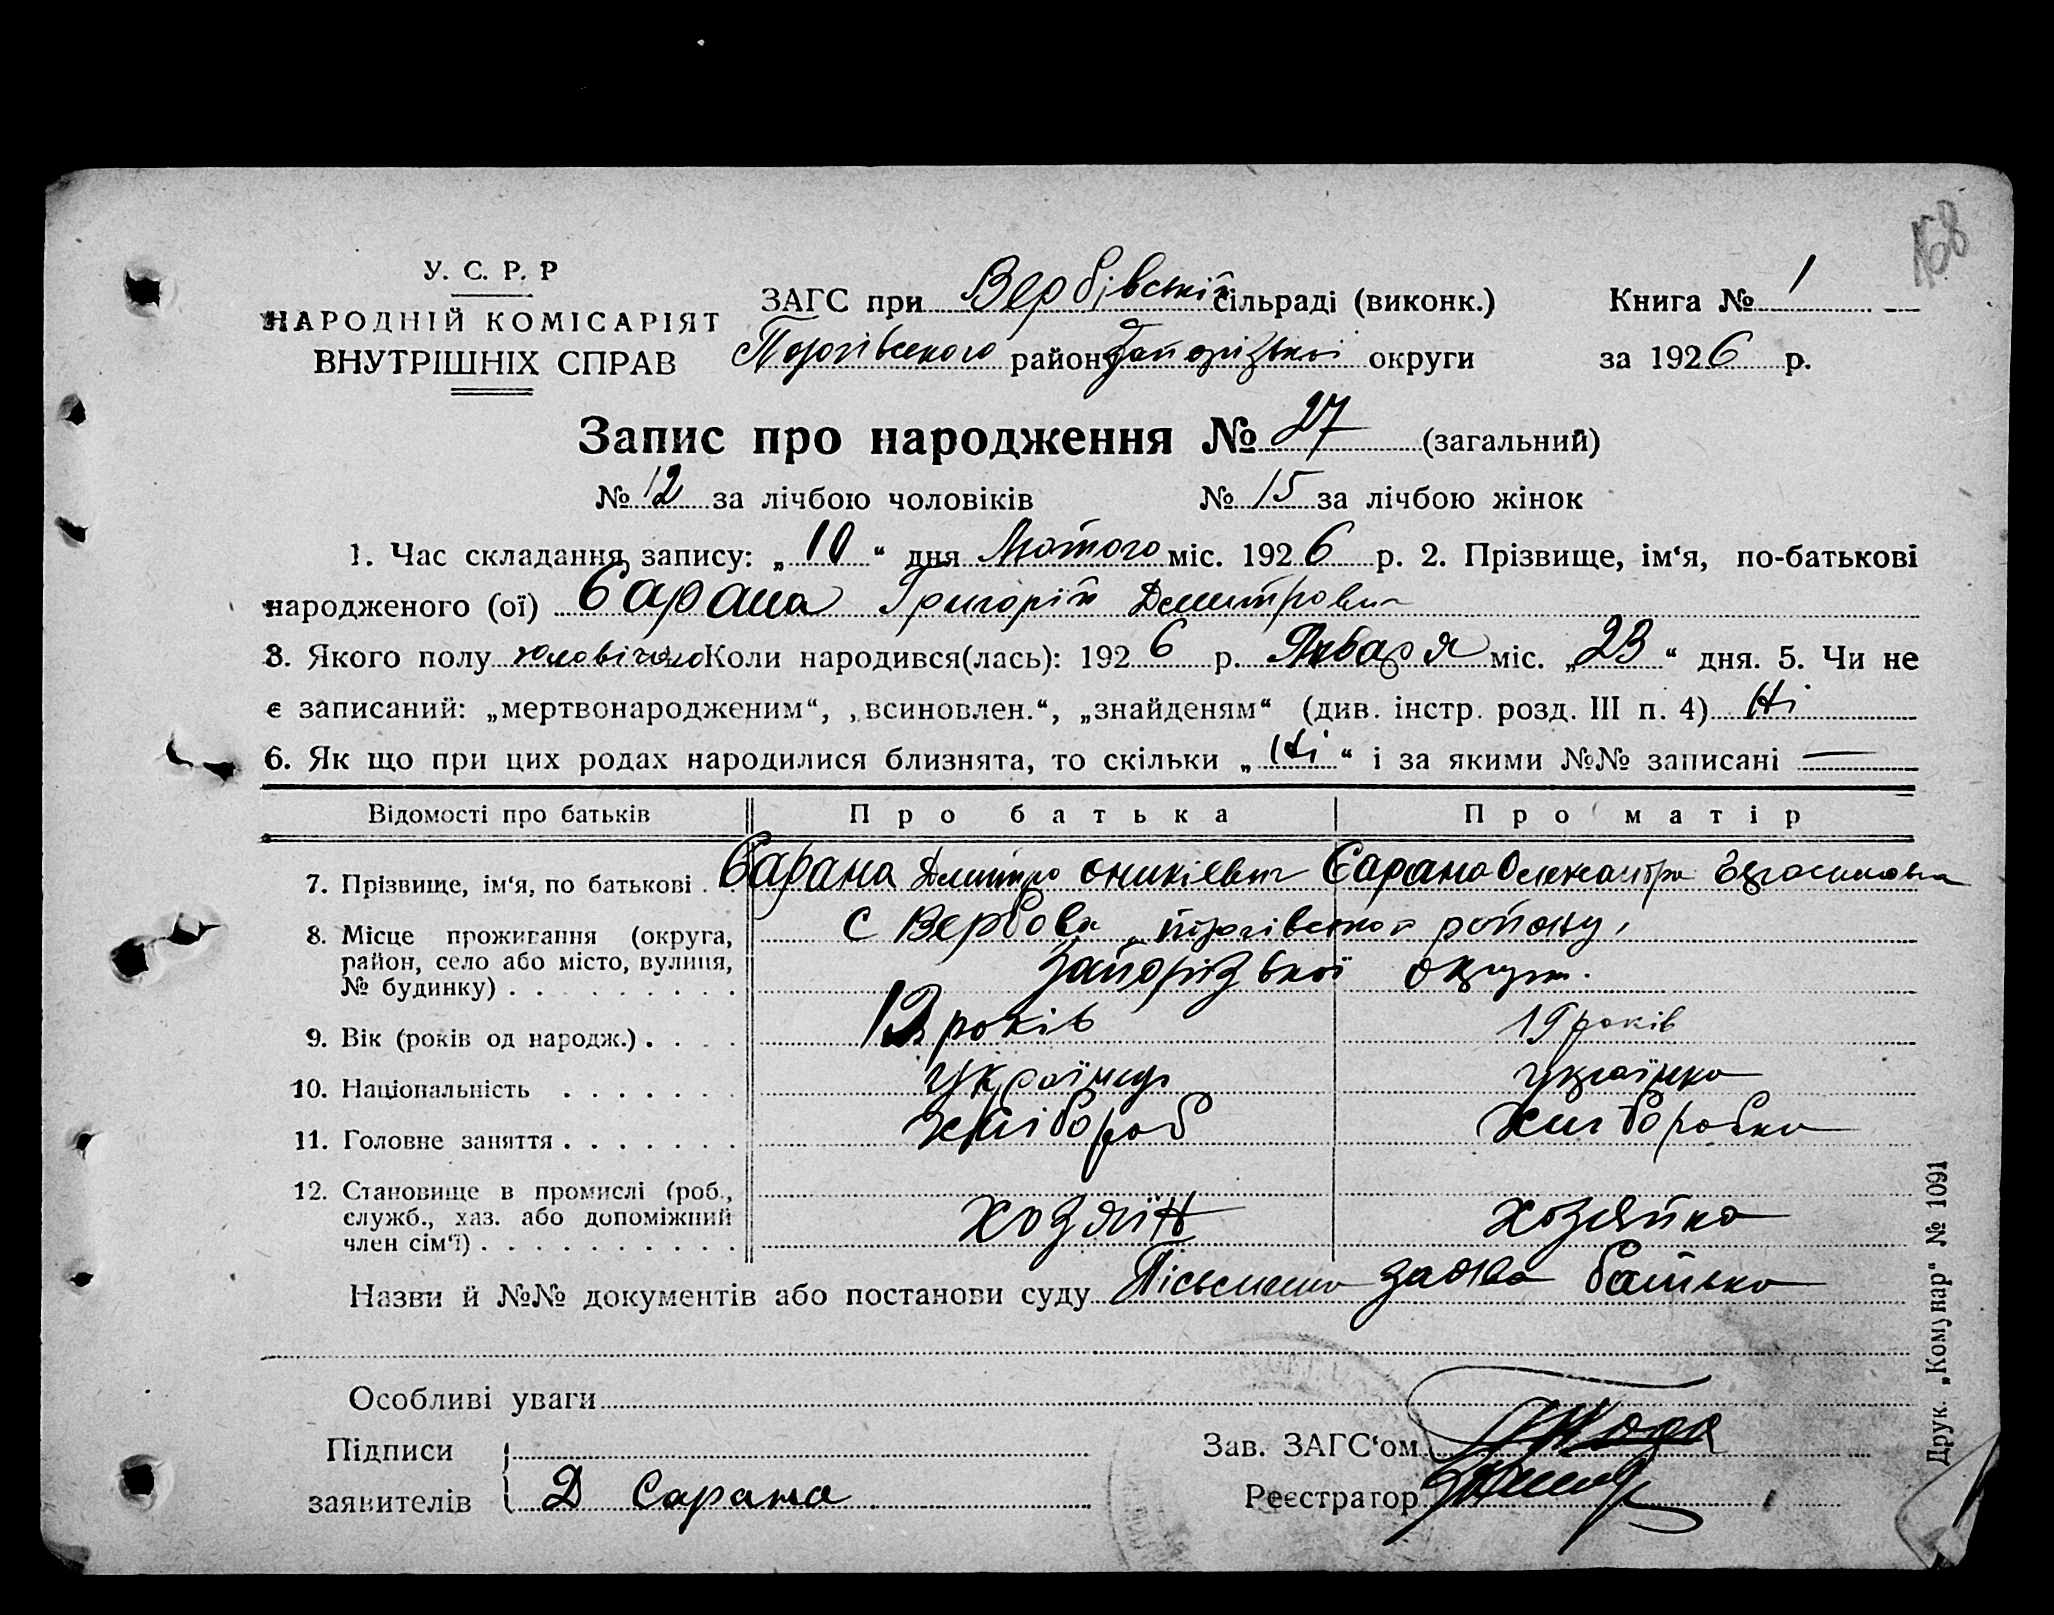 168
У. С. Р. Р
НАРОДНІЙ КОМІСАРІЯТ
ВНУТРІШНІХ СПРАВ
ЗАГС при Вербівській сільраді (виконк.)
Книга № 1
району Запорізької округи
за 1926 р.
Запис про народження № 27 (загальний)
№ 12 за лічбою чоловіків № 15 за лічбою жінок
1. Час складання запису: „10“ дня Лютого міс. 1926 р. 2. Прізвище, ім‘я, по-батькові
народженого (ої) Сарана Григорій Дмитрович
3. Якого полу чоловічого Коли народився(лась): 1926 р. Января міс. „23“ дня. 5. Чи не
є записаний: „мертвонародженим“, „всиновлен.“, „знайденям“ (див. інстр. розд. III п. 4) Ні
6. Як що при цих родах народилися близнята, то скільки „Ні“ і за якими №№ записані —
Відомості про батьків Про батька Про матір
7. Прізвище, ім‘я, по батькові . Сарана Дмитро Оникієвич Сарана Олександра
8. Місце проживання (округа, район, село або місто, вулиця, № будинку) . . . . . . . . . с Вербова району,
Запорізької округи.
9. Вік (років од народж.) . . . . років 19 років
10. Національність . . . . . . . українець українка
11. Головне заняття . . . . . . . хлібороб хліборобка
12. Становище в промислі (роб., служб., хаз. або допоміжний член сім‘ї) . . . . . . . . . . хозяїн хозяйка
Назви й №№ документів або постанови суду заява батька
Особливі уваги
Підписи
заявителів Д Сарана
Зав. ЗАГС‘ом
Реєстратор
Друк. „Комунар“ № 1091